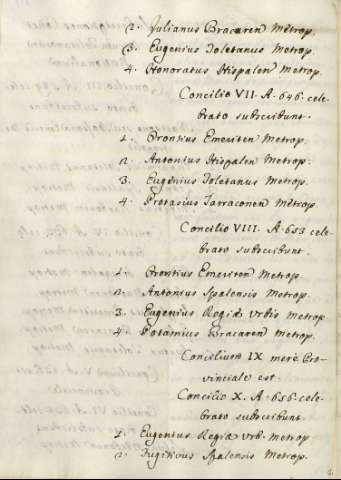 2. Julianus Bracaren Metrop.
3. Eugenius Toletanus Metrop.
4. Honoratus Hispalen Metrop.
Concilio VII. A. 646. cele-
brato subscribunt.
1. Orontius Emeriten Metrop.
2. Antonius Hispalen Metrop.
3. Eugenius Toletanus Metrop.
4. Protasius Tarraconen Metrop.
Concilio VIII. A. 653 cele-
brato subscribunt.
1. Orontius Emeriten Metrop.
2. Antonius Spalensis Metrop.
3. Eugenius Regiæ Vrbis Metrop
4. Potamius Bracaren Metrop.
Concilium IX merè Pro-
vinciale est.
Concilio X. A. 656. cele-
brato subscribunt
1. Eugenius Regiæ Vrb. Metrop
2. Fugitivus Spalensis Metrop.